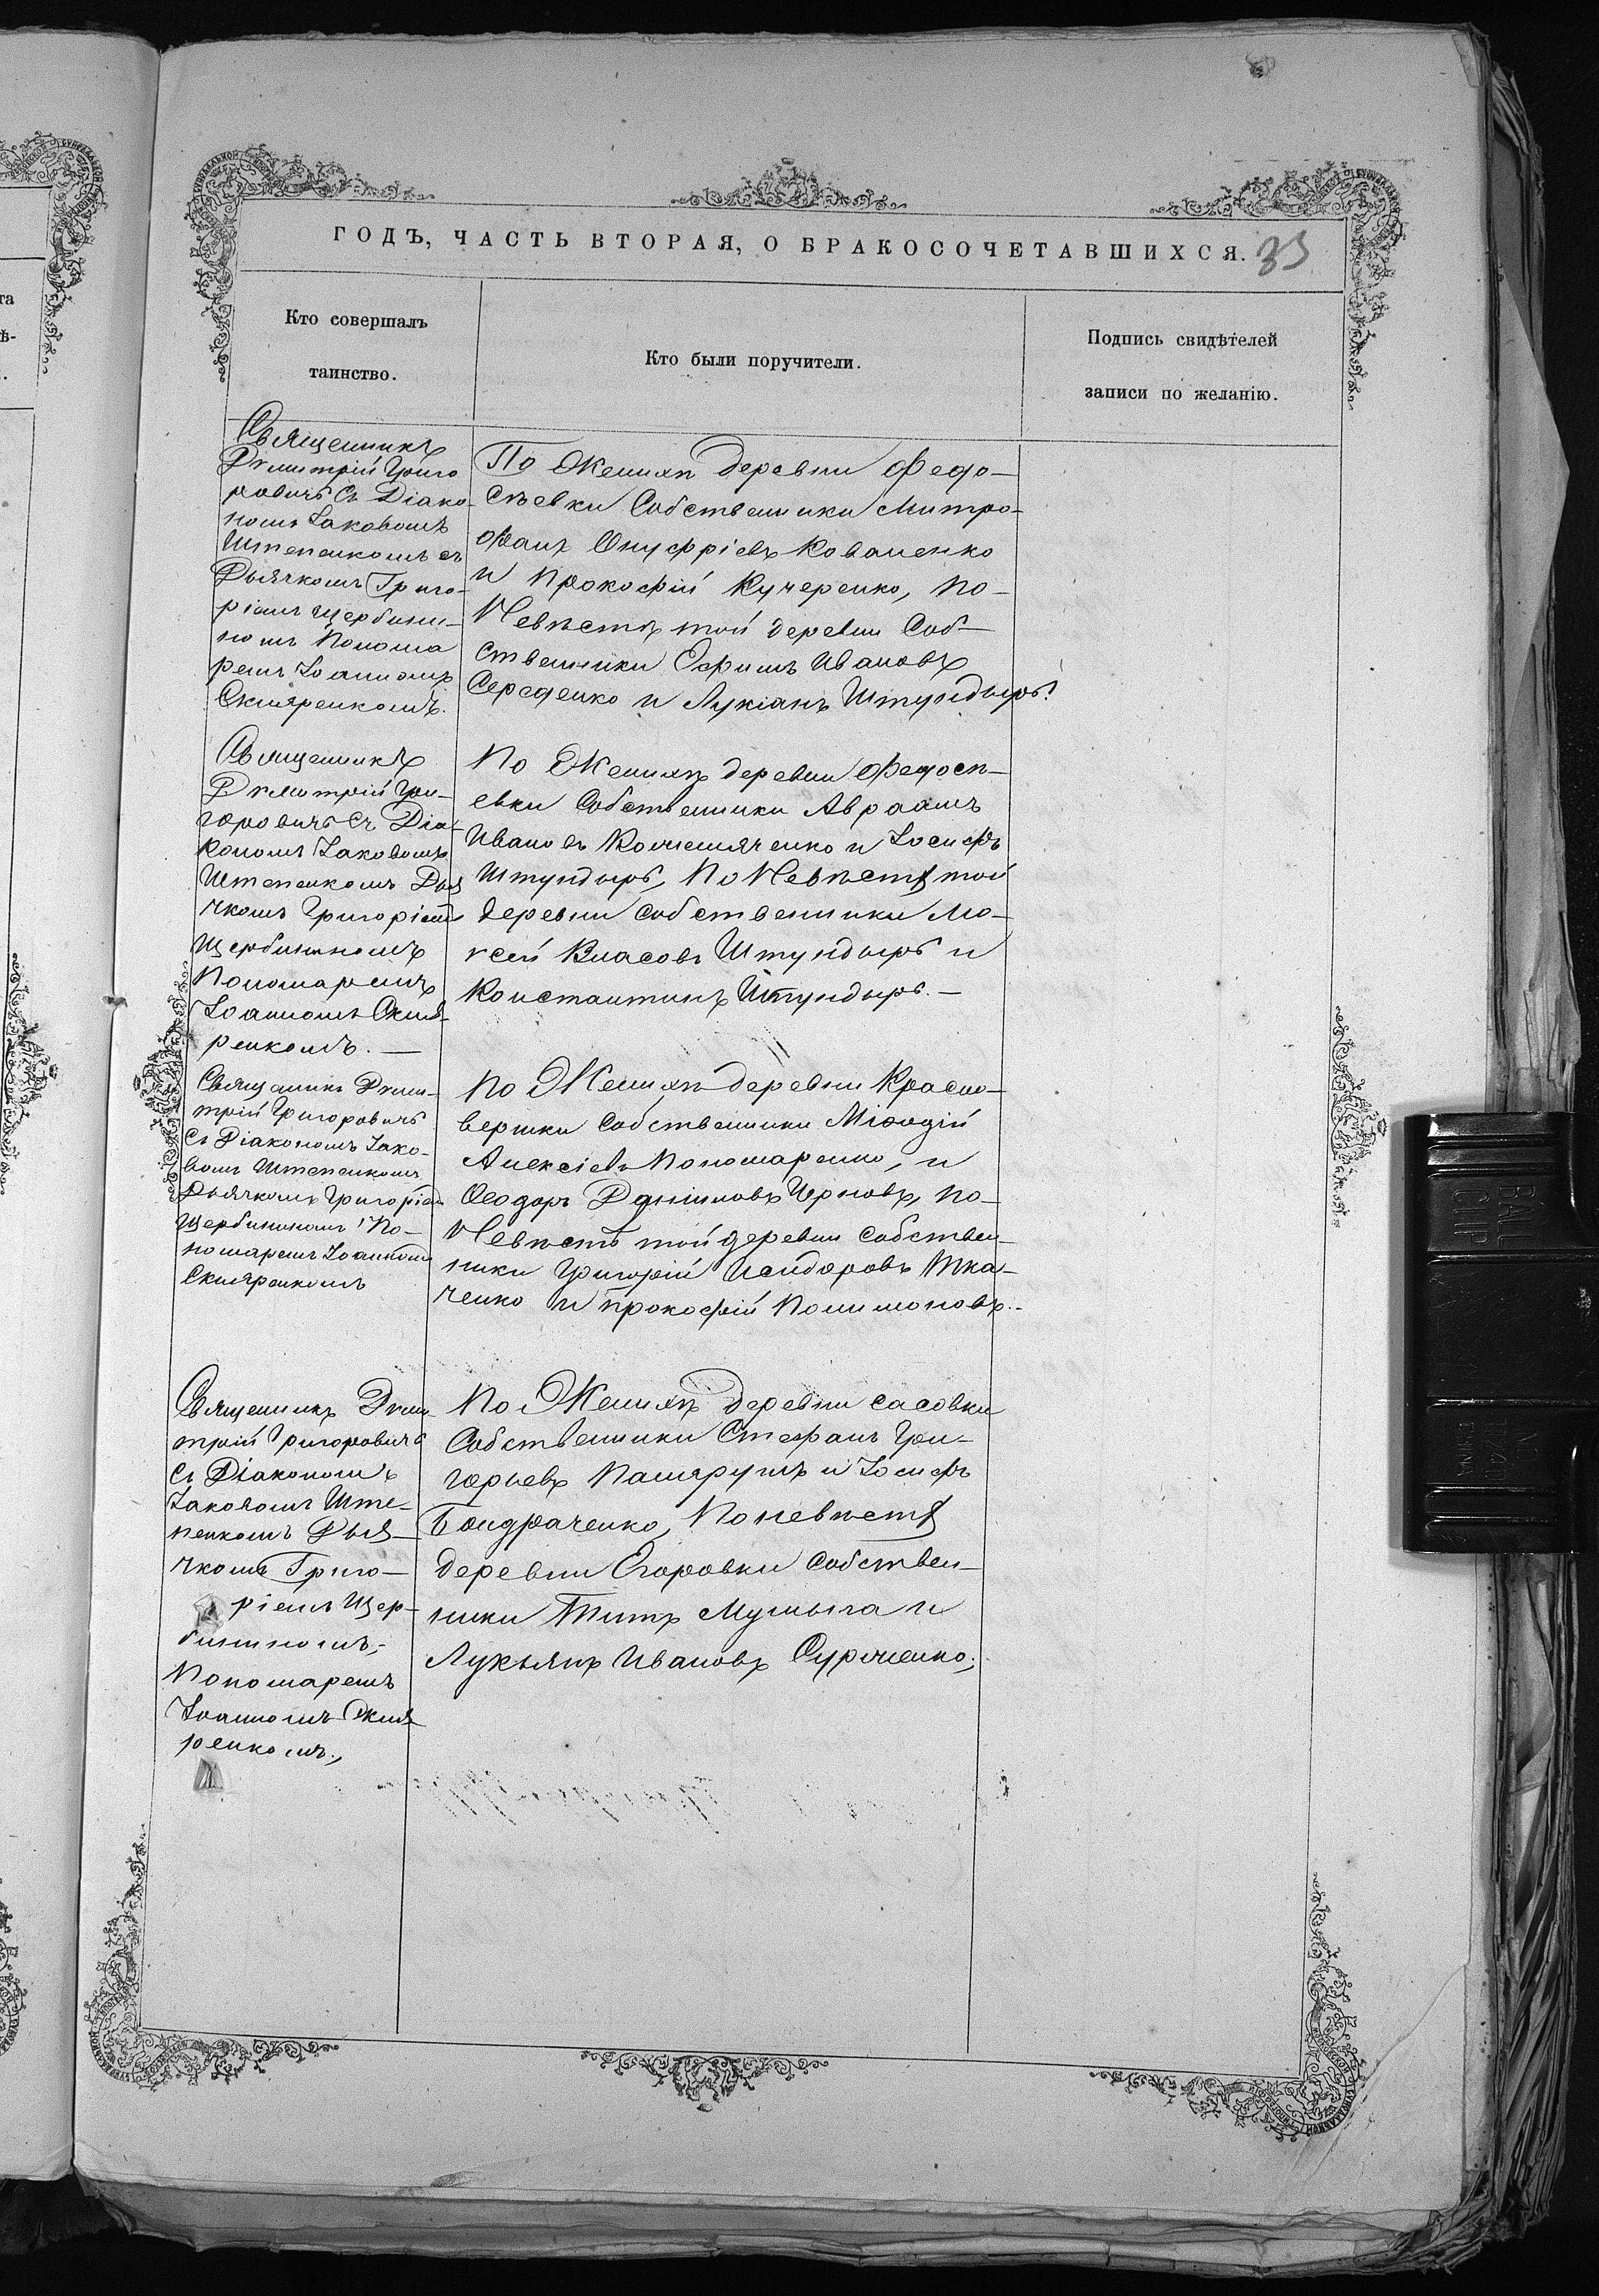 ГОДЪ, ЧАСТЬ ВТОРАЯ, О БРАКОСОЧЕТАВШИХСЯ. 33
Кто совершалъ
таинство.
Кто были поручители.
Подпись свидѣтелей
записи по желанію.
Священникъ
Димитрій Григо
ровичъ Съ Діако-
номъ Іаковомъ
Штепенкомъ съ
Дьячкомъ Григо-
ріемъ Щербини-
номъ Понома
ремъ Іоанномъ
Скляренкомъ.
По Женихѣ деревни Федо-
сѣевки Собственники Митро-
фанъ Онуфріевъ Коваленко
и Прокофій Кучеренко, По-
Невѣстѣ той деревни Соб-
ственники Ефимъ Ивановъ
Середенко и Лукіанъ Штундыръ.
Священникъ
Димитрій Гри-
горовичъ Съ Діа-
кономъ Іаковомъ
Штепенкомъ Дья
чкомъ Григоріемъ
Щербининомъ
Пономаремъ
Іоанномъ Скля-
ренкомъ. —
По Женихѣ деревни Федосѣ-
евки Собственники Авраамъ
Ивановъ и Іосифъ
Штундыръ, По Невѣстѣ той
деревни собственники Мо-
ѵсей Власовъ Штундыръ и
Константинъ Штундыръ. —
Священникъ Дими-
трій Григоровичъ
Съ Діакономъ Іако-
вомъ Штепенкомъ
Дьячкомъ Григоріемъ
Щербининомъ По-
номаремъ Іоанномъ
Скляренкомъ
По Женихѣ деревни Красно-
вершки Собственники Міѳодій
Алексіевъ Пономаренко, и
Ѳеодоръ Даниловъ Черновъ, По-
Невѣстѣ той деревни Собствен-
ники Григорій Исидоровъ Тка-
ченко и Прокофій Полимоновъ.
Священникъ Дими
трій Григоровичъ
Съ Діакономъ
Іаковомъ Ште-
пенкомъ Дья-
чкомъ Григо-
ріемъ Щер-
бининомъ,
Пономаремъ
Іоанномъ Скля
ренкомъ.,
По Женихѣ деревни Сасовки
Собственники Стефанъ Гри-
горьевъ и Іосифъ
Бондраченко, По невѣстѣ
деревни Егоровки Собствен-
ники Титъ и
Лукьянъ Ивановъ